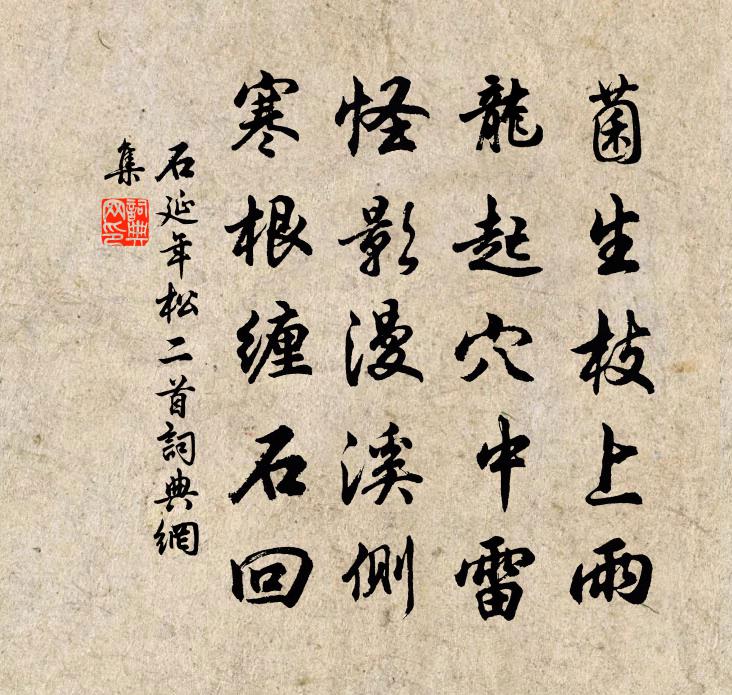 菌生枝上雨
龍起穴中雷
怪影漫溪側
寒根纏石回
石延年松二首詞典網
集
詞典
网印